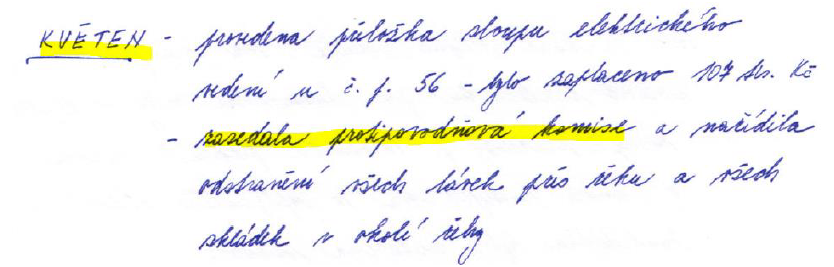 KVĚTEN - provedena přeložka sloupu elektrického
vedení u č. p. 56 - bylo zaplaceno 107 tis. Kč
- zasedala protipovodňová komise a nařídila
odstranění všech lávek přes řeku a všech
skládek v okolí řeky